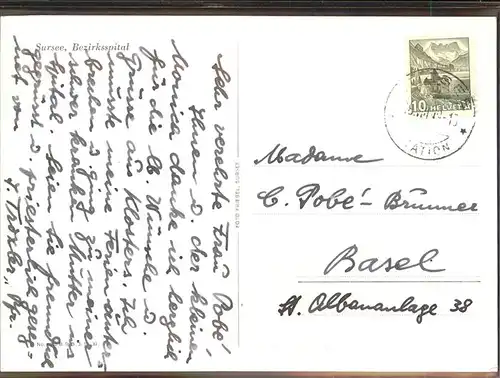 Sursee, Bezirksspital
Sehr verehrte Frau Pobé!
Ihnen u. der kleinen
Monica danke ich herzlich
für die lb. Wünsche u.
Grüsse aus Klosters. Ich
musste meine Ferien unter-
brechen u. ganz zu meiner
schwer kranken Mutter ins
Spital. Seien Sie freundlich
gegrüsst u. priesterlich geseg-
net von
J. Troxler, Pfr.
10 HELVETIA
STATION
Madame
C. Pobé-Brunner
Basel
St. Albananlage 38